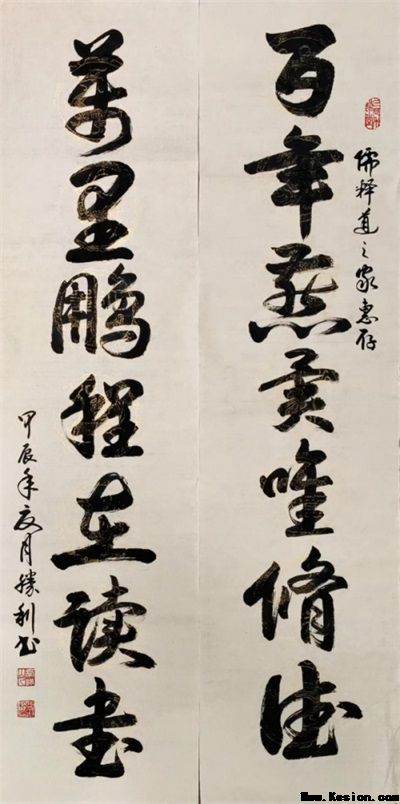 儒释道之家惠存
百年燕翼唯脩德
萬里鹏程在读书
甲辰年夏月勝利书
Www.Kesion.com